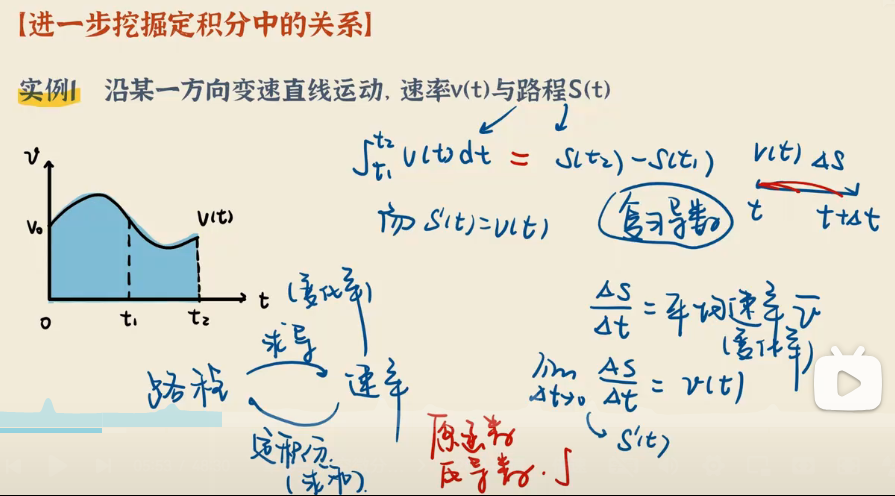 【进一步挖掘定积分中的关系】
实例1 沿某一方向变速直线运动, 速率v(t)与路程S(t)
∫t₁t₂ v(t)dt = S(t₂)-S(t₁)
v(t) ΔS
t t+Δt
而 S'(t)=v(t)
复习导数
v
v₀
v(t)
0 t₁ t₂ t
(变化率)
求导
路程 速率
定积分
(求和)
ΔS/Δt = 平均速率 v̄
(变化率)
lim Δt→0 ΔS/Δt = v(t)
S'(t)
原函数
反导数.∫